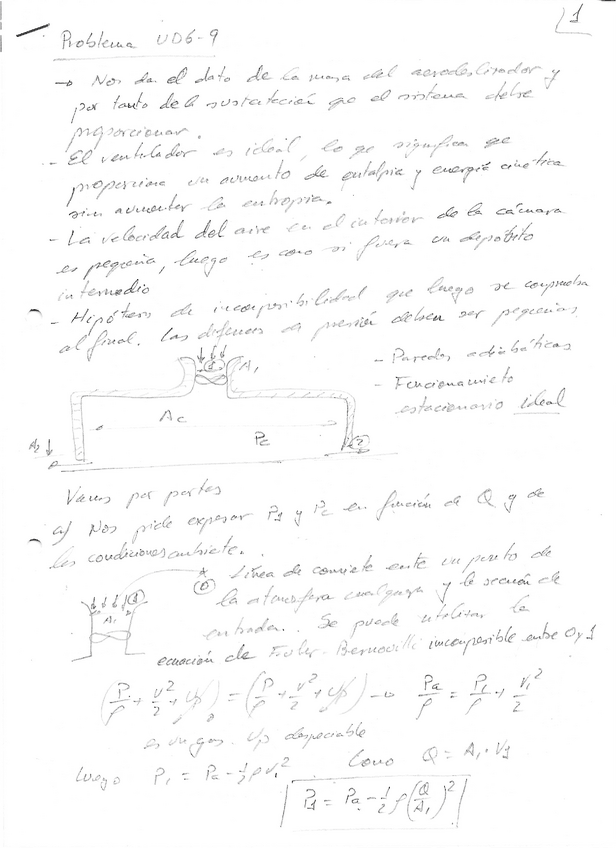 1
Problema UD6-9
→ Nos da el dato de la masa del aerodeslizador y
por tanto de la sustentación que el sistema debe
proporcionar.
- El ventilador es ideal, lo que significa que
proporciona un aumento de entalpia y energía cinética
sin aumentar la entropia.
- La velocidad del aire en el interior de la cámara
es pequeña, luego es como si fuera un depósito
intermedio
- Hipótesis de incompresibilidad que luego se comprueba
al final. Las diferencias de presión deben ser pequeñas.
- Paredes adiabáticas
- Funcionamiento
estacionario ideal
1 A₁
Ac
Pc
A₂
2
Vamos por partes
a) Nos pide expresar P₁ y Pc en función de Q y de
las condiciones ambiente.
0 Línea de corriente entre un punto de
la atmosfera cualquiera y la sección de
entrada. Se puede utilizar la
ecuación de Euler-Bernouilli incompresible entre 0 y 1
1
A₁
(P/ρ + v²/2 + Up)₀ = (P/ρ + v²/2 + Up)₁ → Pa/ρ = P₁/ρ + v₁²/2
es un gas. Up despreciable
luego P₁ = Pa - ½ρv₁² Como Q = A₁·V₁
P₁ = Pa - ½ρ(Q/A₁)²